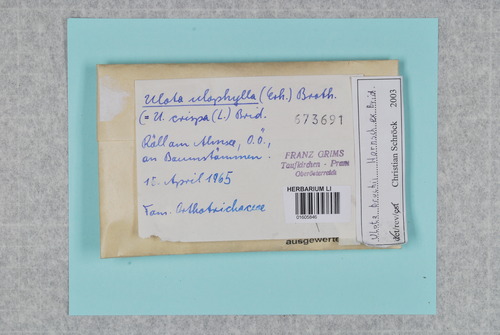 Ulota ulophylla (Erh.) Broth.
(= U. crispa (L.) Brid.
673691
Röll am Almsee, O.Ö.,
an Baumstämmen.
FRANZ GRIMS
Taufkirchen - Pram
Oberösterreich
15. April 1965
HERBARIUM LI
Fam. Orthotrichaceae
ausgewertet
Ulota bruchii Hornsch. ex Brid.
det/rev/conf Christian Schröck 2003